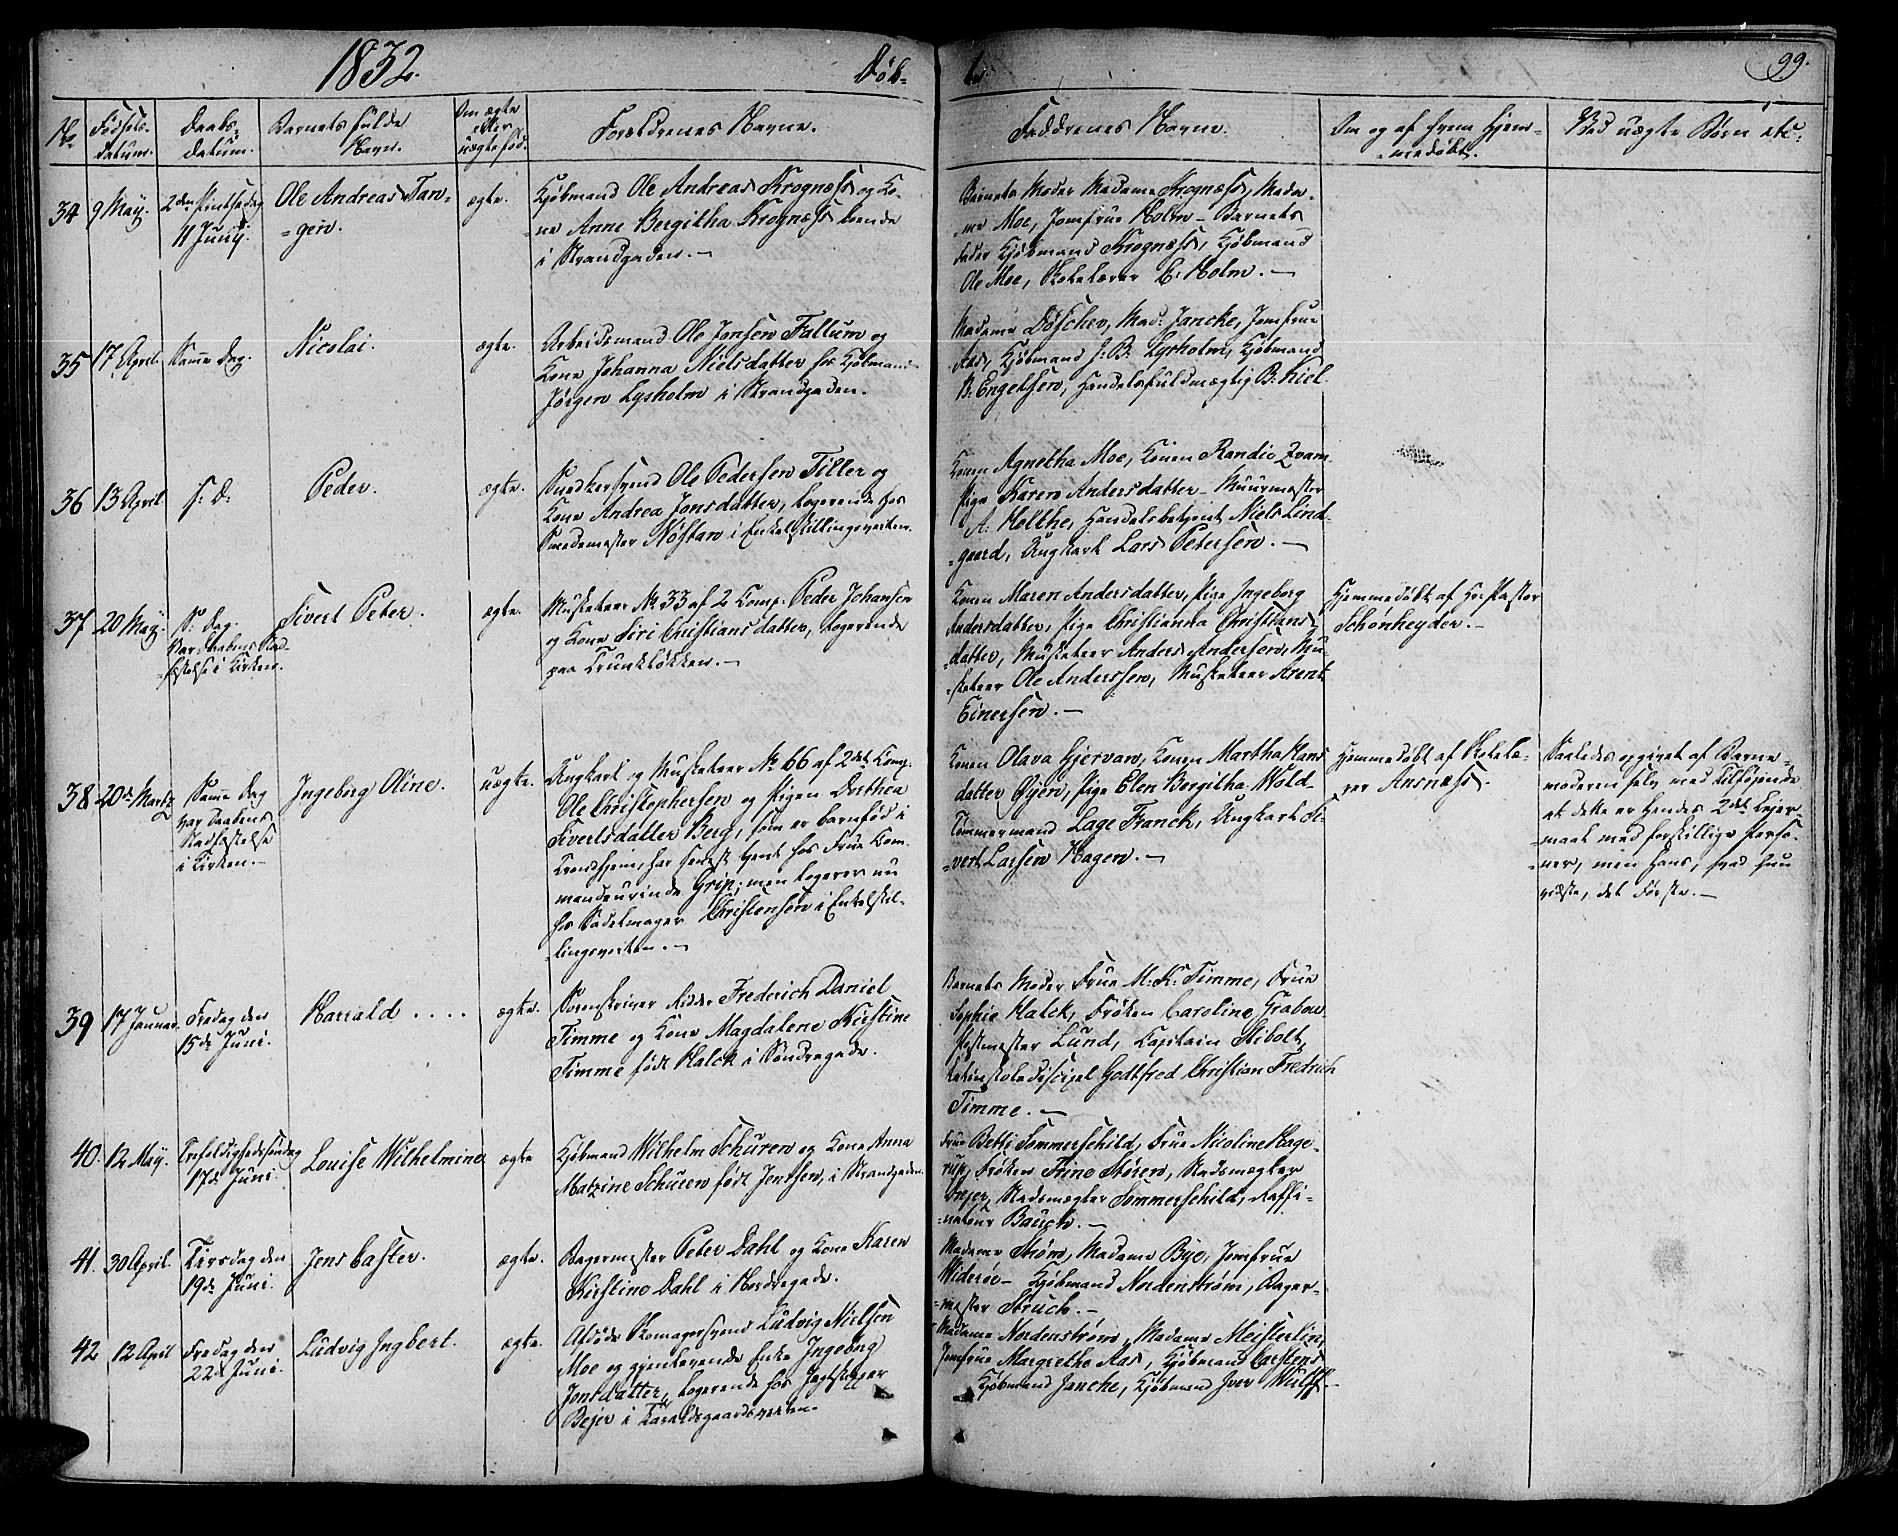 1832.
Døb-
te.
99.
No
Fødsels-
datum.
Daabs-
datum.
Barnets fulde
Navn.
Om ægte
eller
uægte fød.
Forældrenes Navne.
Faddrenes Navne.
Om og af hvem hjem-
-medøbt.
Ved uægte Børn etc.
34
9 May.
2den Pintsedag
11 Junij.
Ole Andreas Tan-
-gen.
ægte.
Kjøbmand Ole Andreas Krognæss og Ko-
ne Anne Bergitha Krognæss boende
i Strandgaden.-
Barnets Moder Madame Krognæss, Mada-
-me Moe, Jomfrue Holm - Barnets
Fader Kjøbmand Krognæss, Kjøbmand
Ole Moe, Skolelærer C. Holm.-
35
17 April.
Samme Dag.
Nicolai.
ægte.
Arbeidsmand Ole Jonsen Fallum og
Kone Johanna Nielsdatter hos Kjøbmand
Jørgen Lysholm i Strandgaden.
Madame Döscher, Mad: Jancke, Jomfrue
Aas, Kjøbmand J: B: Lysholm, Kjøbmand
B: Engelsen, Handelsfuldmægtig B: Kiel
36
13 April
s: D:
Peder.
ægte.
Snedkersvend Ole Pedersen Tiller og
Kone Andrea Jonsdatter, logerende hos
Smedemester Nøstan i Enkelskillingsveiten.
Konen Agnetha Moe, Konen Randie Zvam
Pige Karen Andersdatter - Muurmester
A. Holthe, Handelsbetjent Niels Lind-
-gaard, Ungkarl Lars Petersen.-
37
20 May.
S: Dag.
Var Daabens Stad-
-fæstelse i Kirken.
Sivert Peter.
ægte.
Musketeer No 33 af 2 Comp: Peder Johansen
og Kone Siri Christiansdatter, logerende
paa Trunkløkken.-
Konen Maren Andersdatter, Pige Ingeborg
Andersdatter, Pige Christianna Christians
-datter, Musketeer Anders Andersen, Mu-
-sketeer Ole Anderssen, Musketeer Arent
Einersen.-
Hjemmedøbt af Hr: Pastor
Schønheyder.-
38
20de Martz
Samme Dag
var Daabens
Stadfæstelse
i Kirken.-
Ingeborg Oline.
uægte.
Ungkarl og Musketeer No 66 af 2det Comp:
Ole Christophersen og Pigen Dorthea
Sivertsdatter Berg, som er barnfød i
Trondhjem, har senest tjent hos Frue Com-
mandeurinde Grip; men logerer nu
hos Sadelmager Christensen i Enkelskil-
-lingsveiten.-
Konen Olava Gjervan, Konen Martha Hans
datter Øyen, Pige Elen Bergitha Wold-
Tømmermand Lage Franck, Ungkarl Si-
-vert Larsen Hagen.-
Hjemmedøbt af Skolelæ-
rer Ansnæss.-
Saaledes opgivet af Barne-
moderen selv med Tilføiende
at dette er hendes 2det Leier-
-maal med forskillige Perso-
-ner, men hans, hvad hun
vidste, det Første.-
39
17 Januar.
Fredag den
15de Juni.
Harrald ....
ægte.
Sorenskriver Ridder Frederich Daniel
Timme og Kone Magdalene Kirstine
Timme født Halck i Søndregade.
Barnets Moder, Frue M: K: Timme, Frue
Sophie Halck, Frøken Caroline Grabow
Postmester Lund, Capitain Stibolt,
Latinskoledisciqel Godtfred Christian Fredrich
Timme.-
40.
12 May.
Trefoldighedssøndag
17de Juni.
Louise Wilhelmine
ægte
Kjøbmand Wilhelm Schuren og Kone Anna
Matzine Schuren født Jentsen, i Strandgaden.
Frue Betti Sommerschild, Frue Nicoline Hage-
rup, Frøken Trine Støren, Stadsmægler
Fejer, Stadsmægler Sommerschild, Raffi-
-nateur Bauck.-
41.
30 April.
Tirsdag den
19de Juni.
Jens Caster.
ægte.
Bagermester Peter Dahl og Kone Karen
Kirstine Dahl i Nordregade.
Madame Strøm, Madame Bye, Jomfrue
Widerøe - Kjøbmand Nordenstrøm, Bager-
-mester Struch.-
42
12 April
Fredag den
22de Juni.
Ludvig Ingbert.
ægte.
Afdøde Skomagersvend Ludvig Nielsen
Moe og gjenlevende Enke Ingeborg
Jonsdatter, logerende hos Jagtskipper
Bejer i Taraldsgaardsveiten.
Madame Nordenstrøm, Madame Meisterlin,
Jomfrue Margretha Aas, Kjøbmand Carstens
Kjøbmand Jancke, Kjøbmand Iver Wulff.-